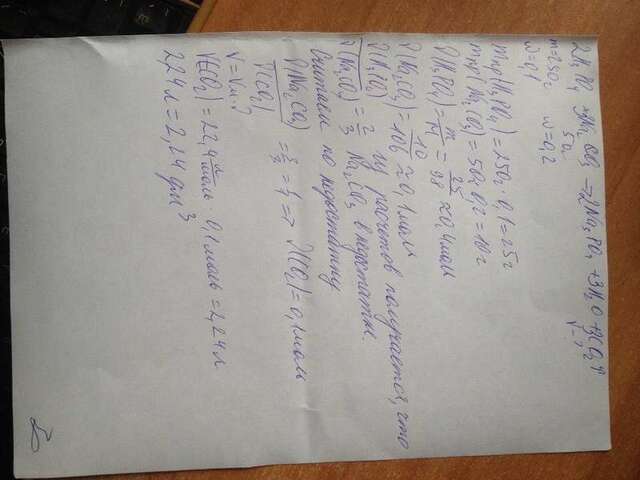 2H₃PO₄ + 3Na₂CO₃ => 2Na₃PO₄ + 3H₂O + 3CO₂↑
m=250г 50г V-?
ω=0,1 ω=0,2
mчв(H₃PO₄) = 250г · 0,1 = 25г
mчв(Na₂CO₃) = 50г · 0,2 = 10г
ν(H₃PO₄) = m/M = 25/98 ≈ 0,4 моль
ν(Na₂CO₃) = 10/106 ≈ 0,1 моль
ν(H₃PO₄) / ν(Na₂CO₃) = 2/3 из расчетов получается, что Na₂CO₃ в недостатке.
Считаем по недостатку
ν(Na₂CO₃) / ν(CO₂) = 3/3 = 1 => ν(CO₂) = 0,1 моль
V = Vm · ν
V(CO₂) = 22,4 л/моль · 0,1 моль = 2,24 л
2,24 л = 2,24 дм³